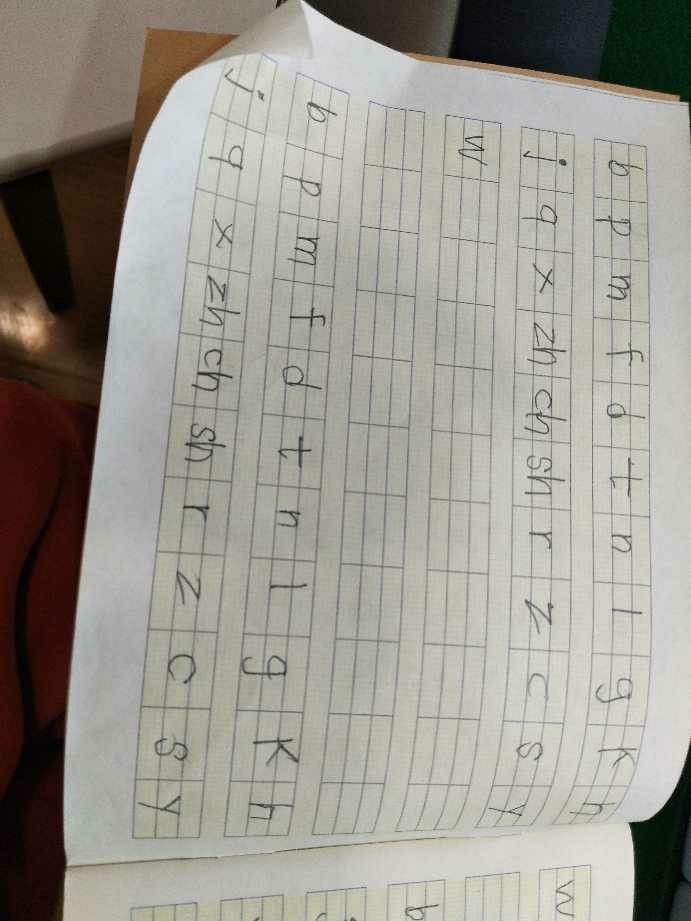 b p m f d t n l g k h
j q x zh ch sh r z c s y
w
b p m f d t n l g k h
j q x zh ch sh r z c s y
w
b